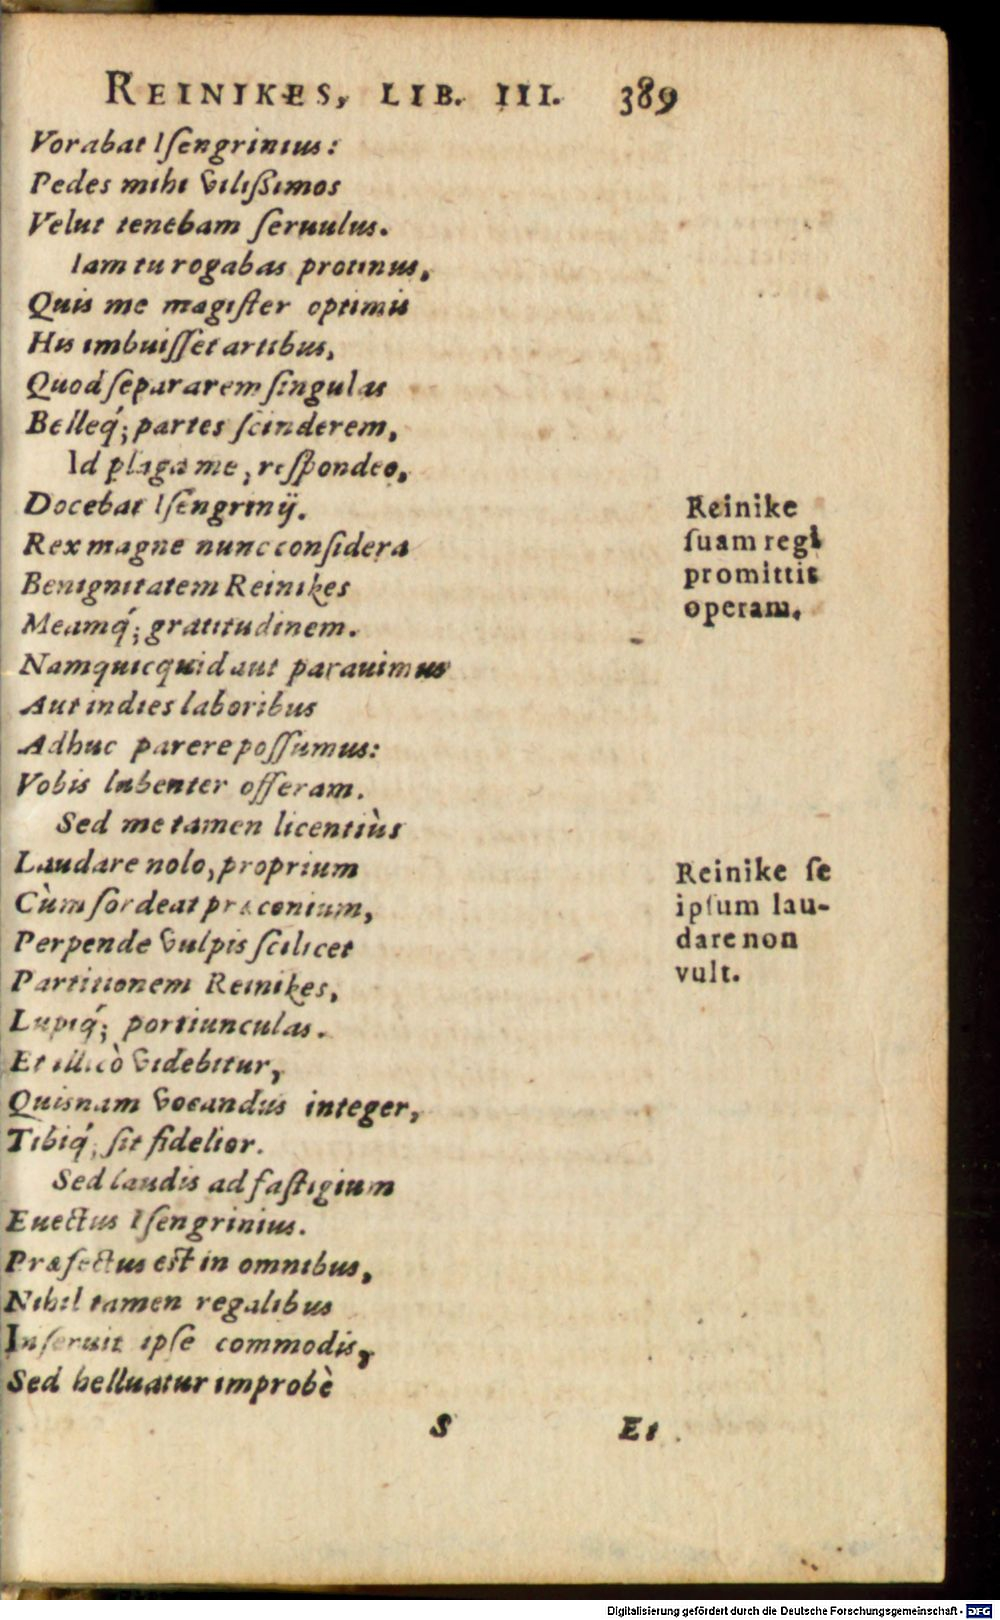 REINIKES, LIB. III. 389
Vorabat Iſengrinius:
Pedes mihi viliſſimos
Velut tenebam ſeruulus.
Iam tu rogabas protinus,
Quis me magiſter optimis
His imbuiſſet artibus,
Quod ſepararem ſingulas
Belleq́; partes ſcinderem,
Id plaga me, reſpondeo,
Docebat Iſengrinij.
Rex magne nunc conſidera
Benignitatem Reinikes
Meamq́; gratitudinem.
Nam quicquid aut parauimus
Aut indies laboribus
Adhuc parere poſſumus:
Vobis lubenter offeram.
Sed me tamen licentiùs
Laudare nolo, proprium
Cùm ſordeat præconium,
Perpende vulpis ſcilicet
Partitionem Reinikes,
Lupiq́; portiunculas.
Et illicò videbitur,
Quisnam vocandus integer,
Tibiq́; ſit fidelior.
Sed laudis ad faſtigium
Euectus Iſengrinius.
Præfectus eſt in omnibus,
Nihil tamen regalibus
Inſeruit ipſe commodis,
Sed helluatur improbè
S Et
Reinike
ſuam regi
promittit
operam.
Reinike ſe
ipſum lau-
dare non
vult.
Digitalisierung gefördert durch die Deutsche Forschungsgemeinschaft - DFG